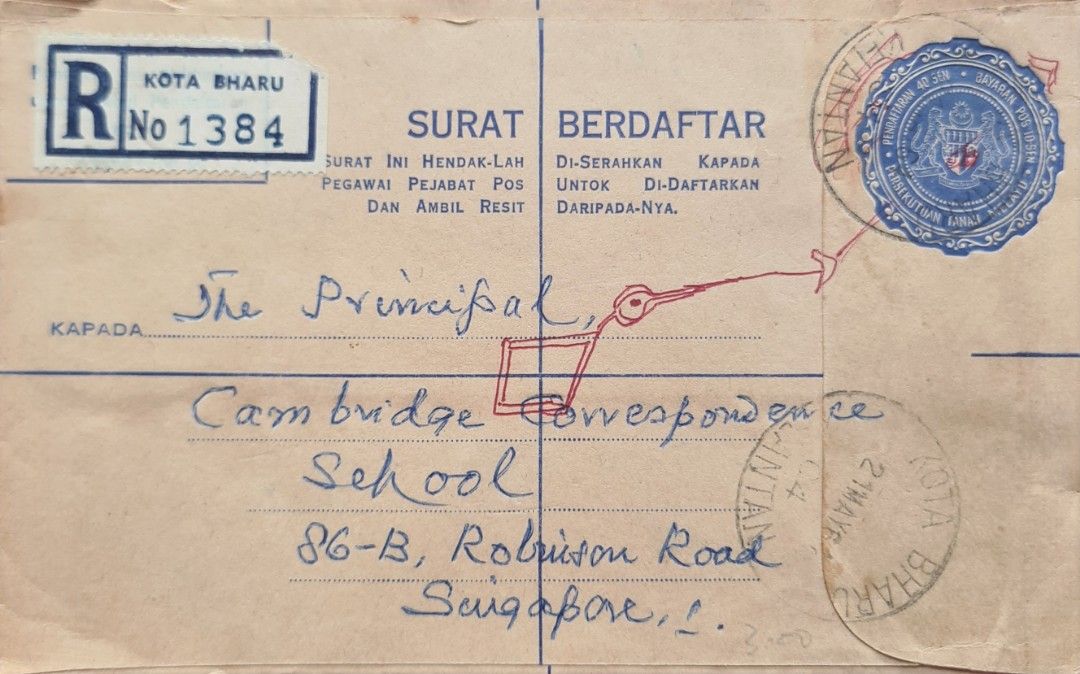 R KOTA BHARU
No 1384
SURAT BERDAFTAR
SURAT INI HENDAK-LAH DI-SERAHKAN KAPADA
PEGAWAI PEJABAT POS UNTOK DI-DAFTARKAN
DAN AMBIL RESIT DARIPADA-NYA.
PENDAFTARAN 40 SEN • BAYARAN POS 10 SEN
PERSEKUTUAN TANAH MELAYU
KELANTAN
KAPADA The Principal,
Cambridge Correspondence
School
86-B, Robinson Road
Singapore, 1.
KOTA BHARU
21 MAY
3.00